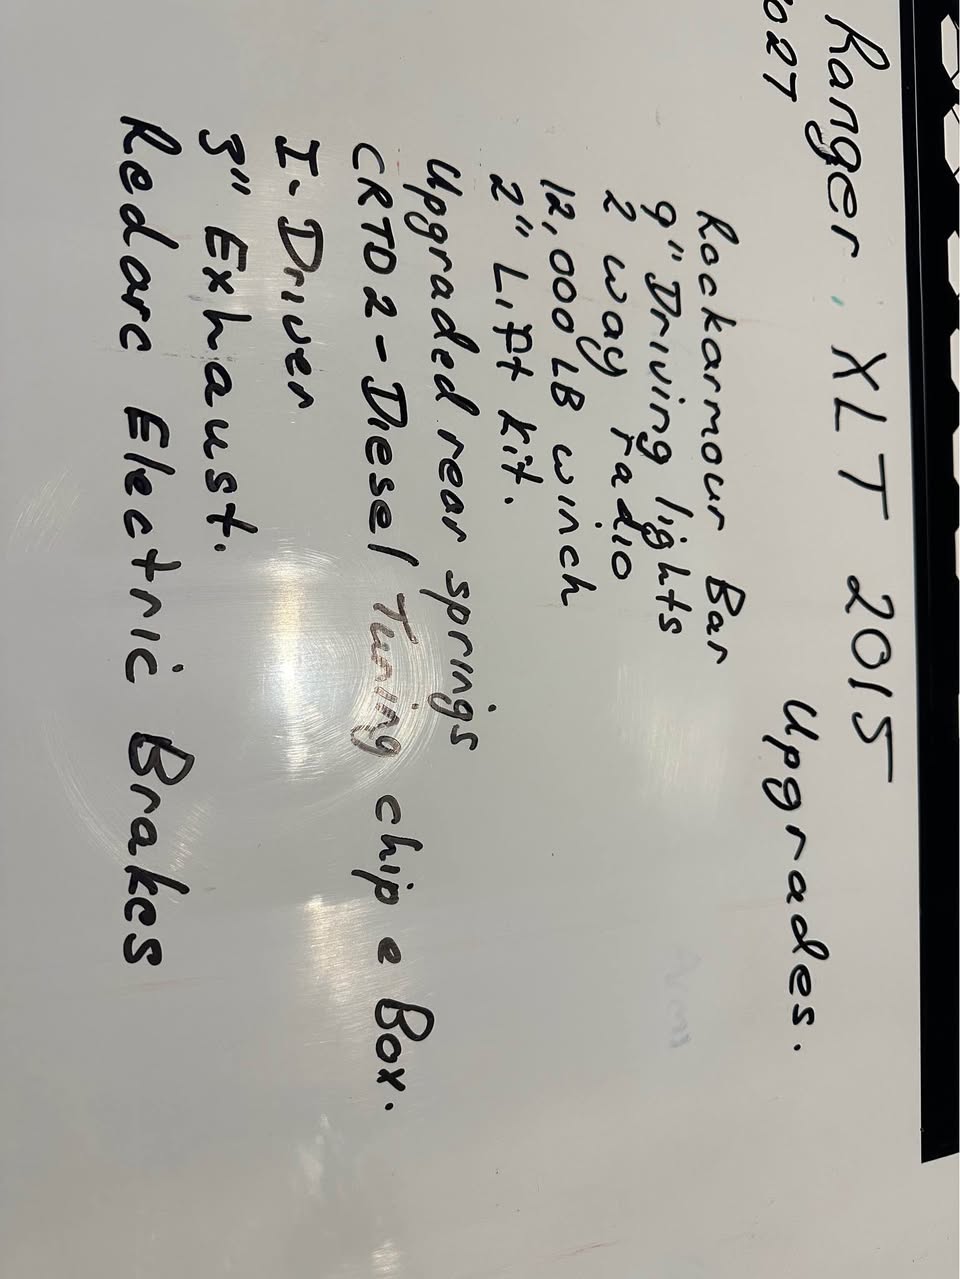 Ranger. XLT 2015
2027 Upgrades.
Rockarmour Bar
9" Driving lights
2 way radio
12,000 LB winch
2" Lift kit.
Upgraded rear springs
CRTD2-Diesel Tuning chip e Box.
I-Driver
3" Exhaust.
Redarc Electric Brakes